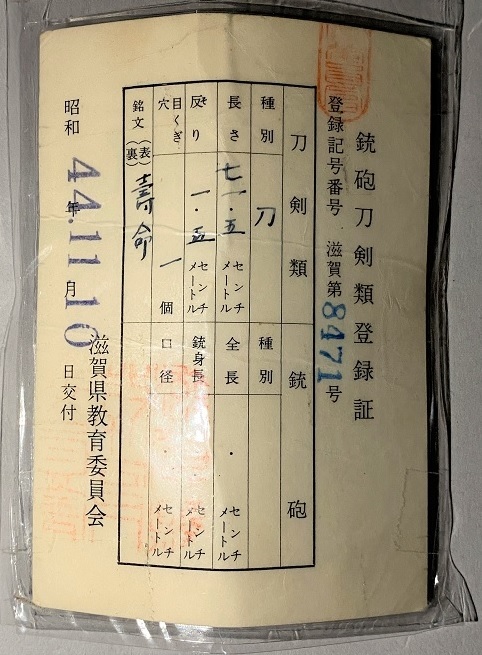 銃砲刀剣類登録証
登録記号番号 滋賀第8471号
刀剣類 銃砲
種別 刀 種別
長さ 七一・五 センチメートル 全長 ・ センチメートル
反り そり 一・五 センチメートル 銃身長 ・ センチメートル
目くぎ穴 一個 口径 ・ センチメートル
銘文 (表) 壽命
(裏)
昭和44年11月10日交付
滋賀県教育委員会